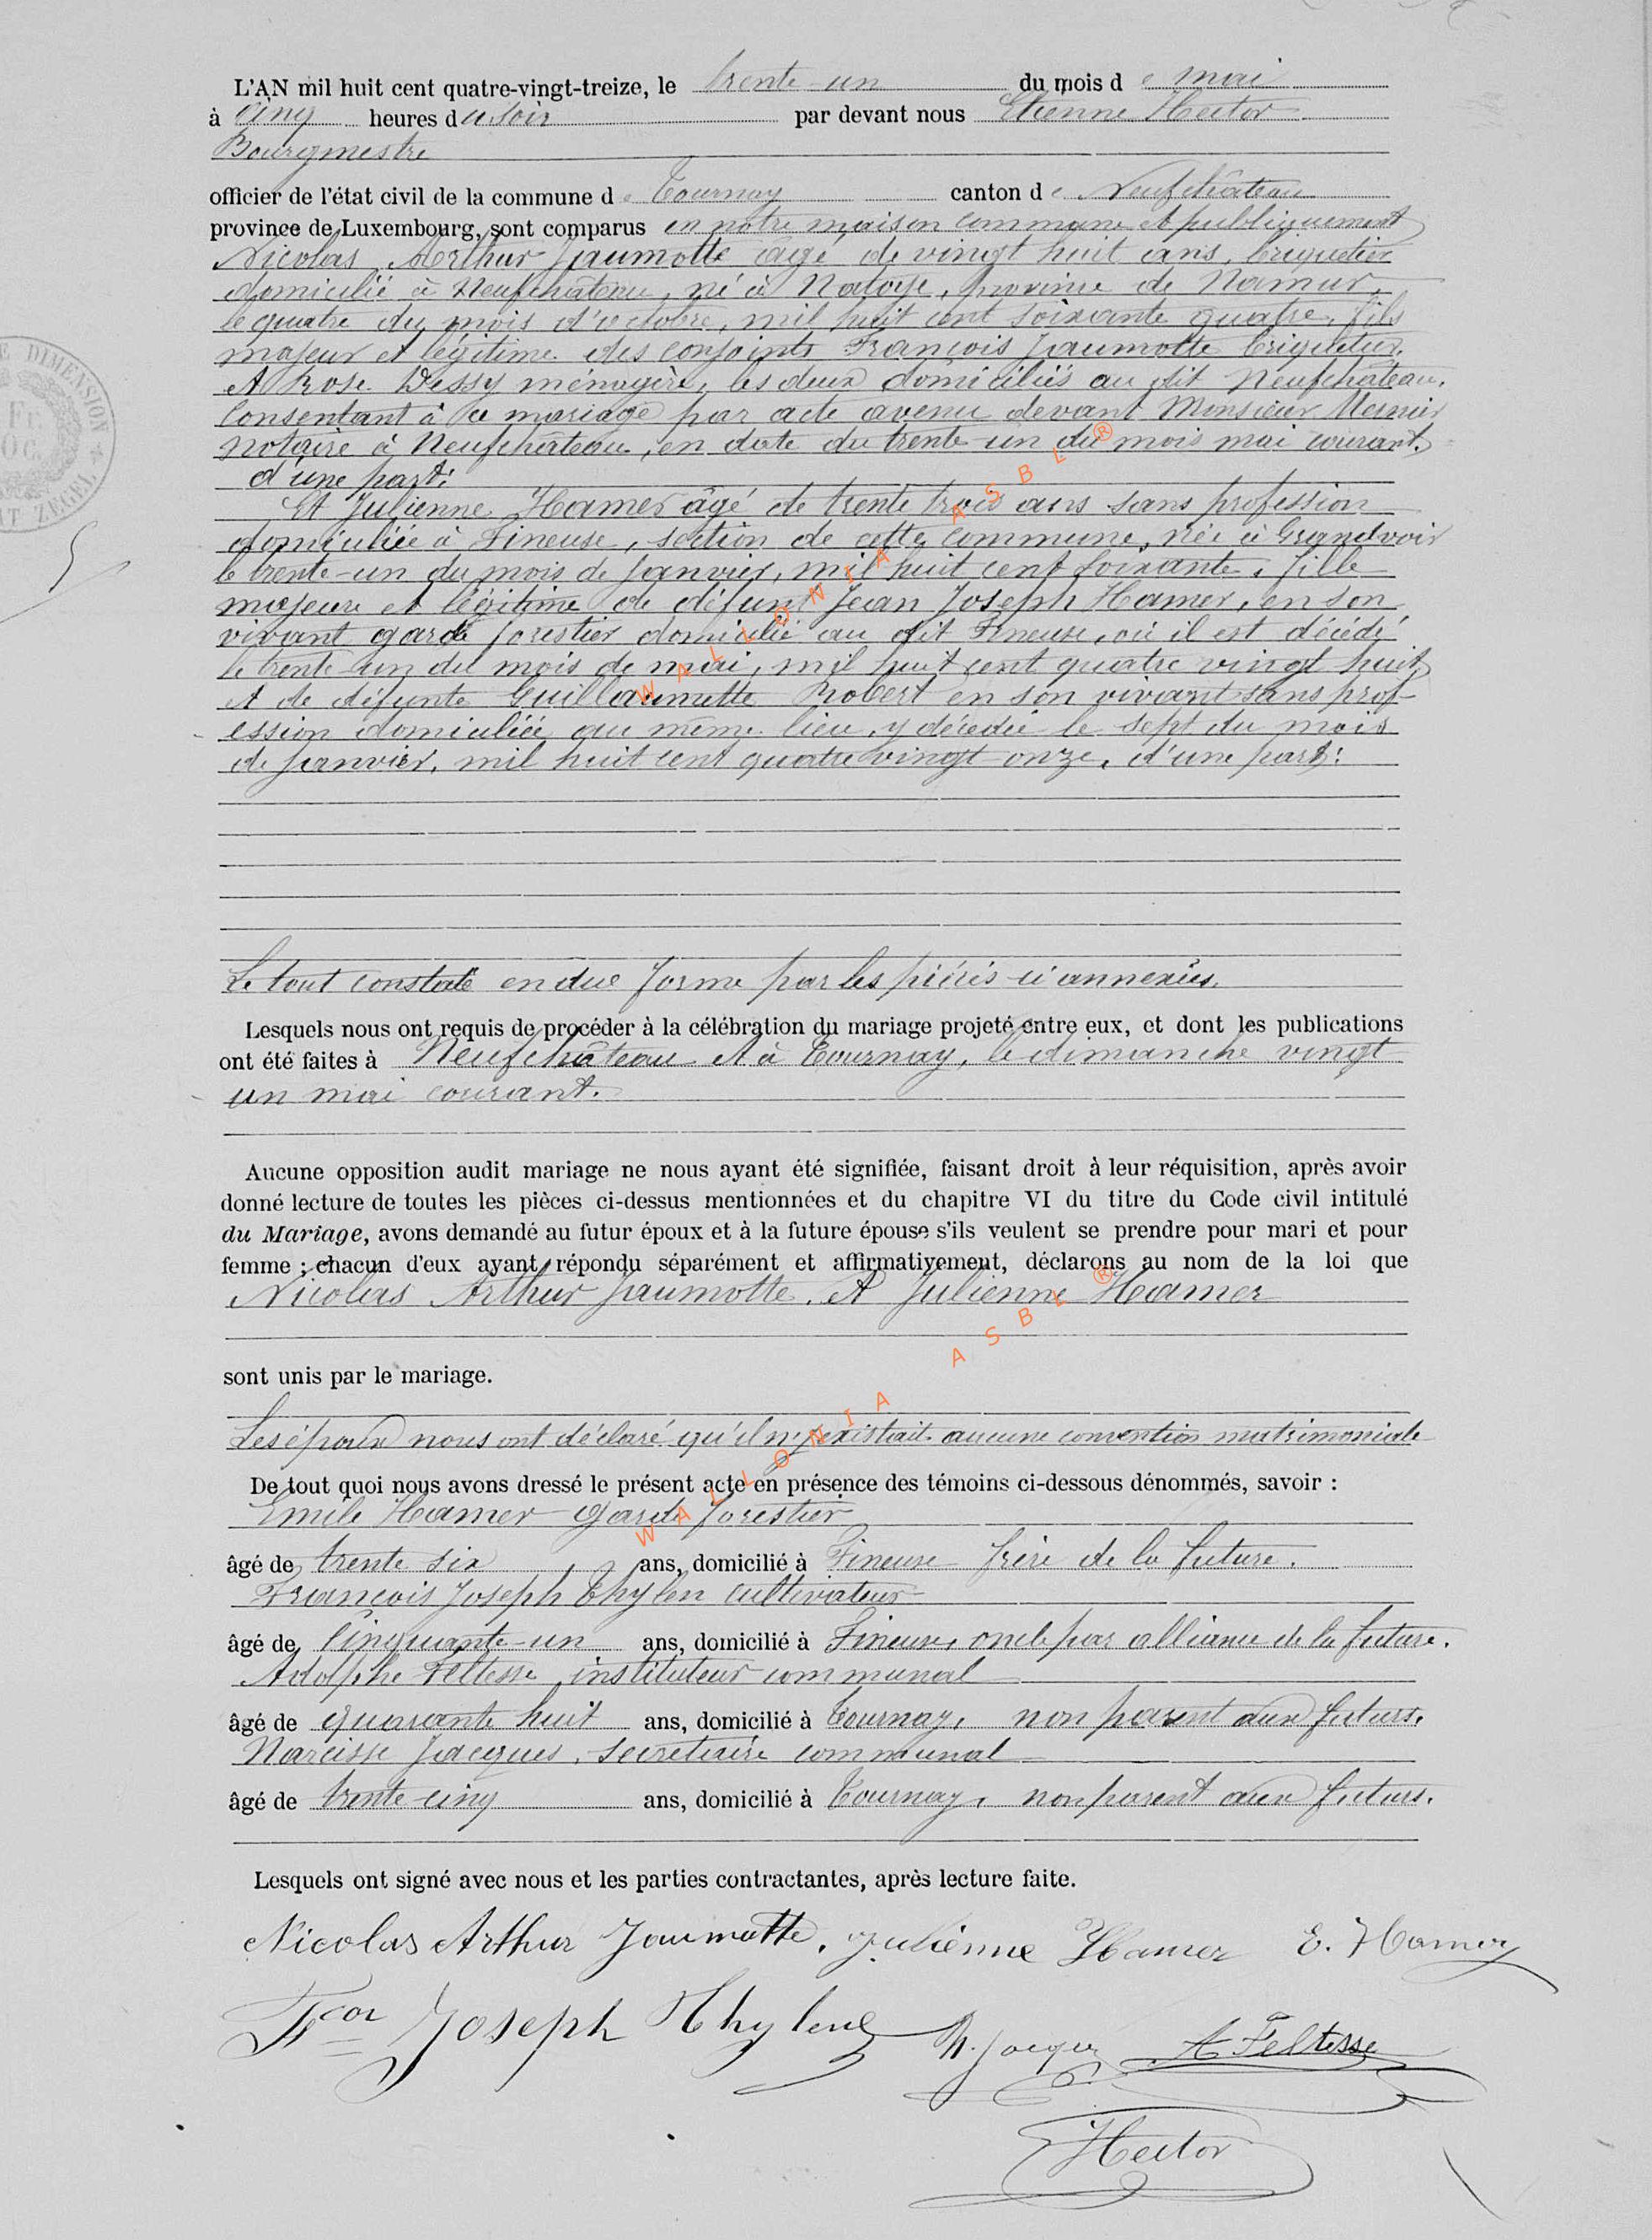 L'AN mil huit cent quatre-vingt-treize, le trente-un du mois de mai
à cinq heures du soir par devant nous Etienne Hector
Bourgmestre
officier de l'état civil de la commune de Tournay canton de Neufchâteau
province de Luxembourg, sont comparus en notre maison commune et publiquement
Nicolas Arthur Jaumotte âgé de vingt huit ans, briquetier
domicilié à Neufchâteau, né à Natoye, province de Namur,
le quatre du mois d'octobre, mil huit cent soixante quatre, fils
majeur et légitime des conjoints François Jaumotte briquetier,
et Rose Dessy ménagère, les deux domiciliés au dit Neufchâteau,
consentant à ce mariage par acte avenu devant Monsieur
notaire à Neufchâteau, en date du trente un du mois mai courant,
d'une part:
Et Julienne Hamer âgé de trente trois ans sans profession
domiciliée à Fineuse, section de cette commune, née à Grandvoir
le trente-un du mois de janvier, mil huit cent soixante, fille
majeure et légitime de défunt Jean Joseph Hamer, en son
vivant garde forestier domicilié au dit Fineuse, où il est décédé
le trente-un du mois de mai, mil huit cent quatre vingt huit,
et de défunte Guillaumette Robert en son vivant sans prof-
ession domiciliée au même lieu, y décédée le sept du mois
de janvier, mil huit cent quatre vingt-onze, d'une part:
Le tout constaté en due forme par les pièces ci annexées.
Lesquels nous ont requis de procéder à la célébration du mariage projeté entre eux, et dont les publications
ont été faites à Neufchâteau et à Tournay, le dimanche vingt
un mai courant.
Aucune opposition audit mariage ne nous ayant été signifiée, faisant droit à leur réquisition, après avoir
donné lecture de toutes les pièces ci-dessus mentionnées et du chapitre VI du titre du Code civil intitulé
du Mariage, avons demandé au futur époux et à la future épouse s'ils veulent se prendre pour mari et pour
femme ; chacun d'eux ayant répondu séparément et affirmativement, déclarons au nom de la loi que
Nicolas Arthur Jaumotte, et Julienne Hamer
sont unis par le mariage.
Les époux nous ont déclaré qu'il n'y existait aucune convention matrimoniale
De tout quoi nous avons dressé le présent acte en présence des témoins ci-dessous dénommés, savoir :
Emile Hamer garde forestier
âgé de trente six ans, domicilié à Fineuse frère de la future.
François Joseph Thylen cultivateur
âgé de cinquante-un ans, domicilié à Fineuse, oncle par alliance de la future.
Adolphe Feltesse, instituteur communal
âgé de quarante huit ans, domicilié à Tournay, non parent aux futurs,
Narcisse Jacques, secrétaire communal
âgé de trente-cinq ans, domicilié à Tournay, non parent aux futurs.
Lesquels ont signé avec nous et les parties contractantes, après lecture faite.
Nicolas Arthur Jaumotte, Julienne Hamer E. Hamer
Fçois Joseph Thylen N. Jacques A Feltesse
EHector
WALLONIA ASBL®
WALLONIA ASBL®